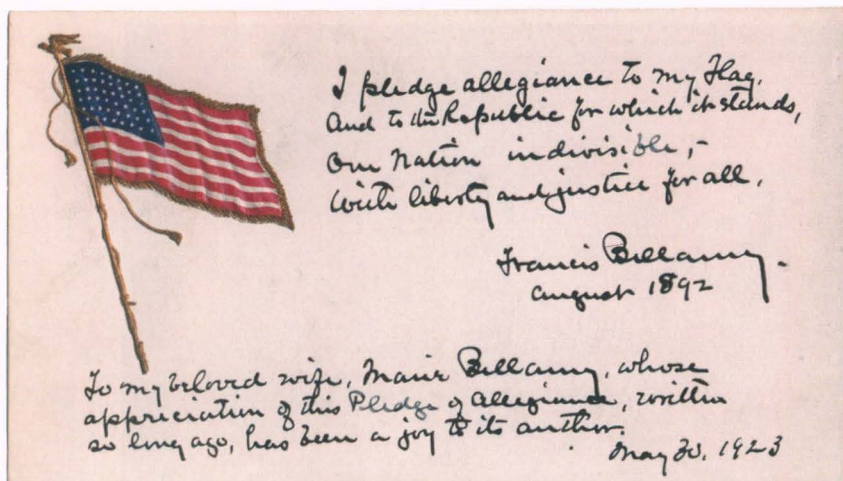 I pledge allegiance to my Flag,
and to the Republic for which it stands,
One Nation indivisible,-
with liberty and justice for all.
Francis Bellamy.
August 1892
To my beloved wife, Marie Bellamy, whose
appreciation of this Pledge of Allegiance, written
so long ago, has been a joy to its author.
May 30, 1923